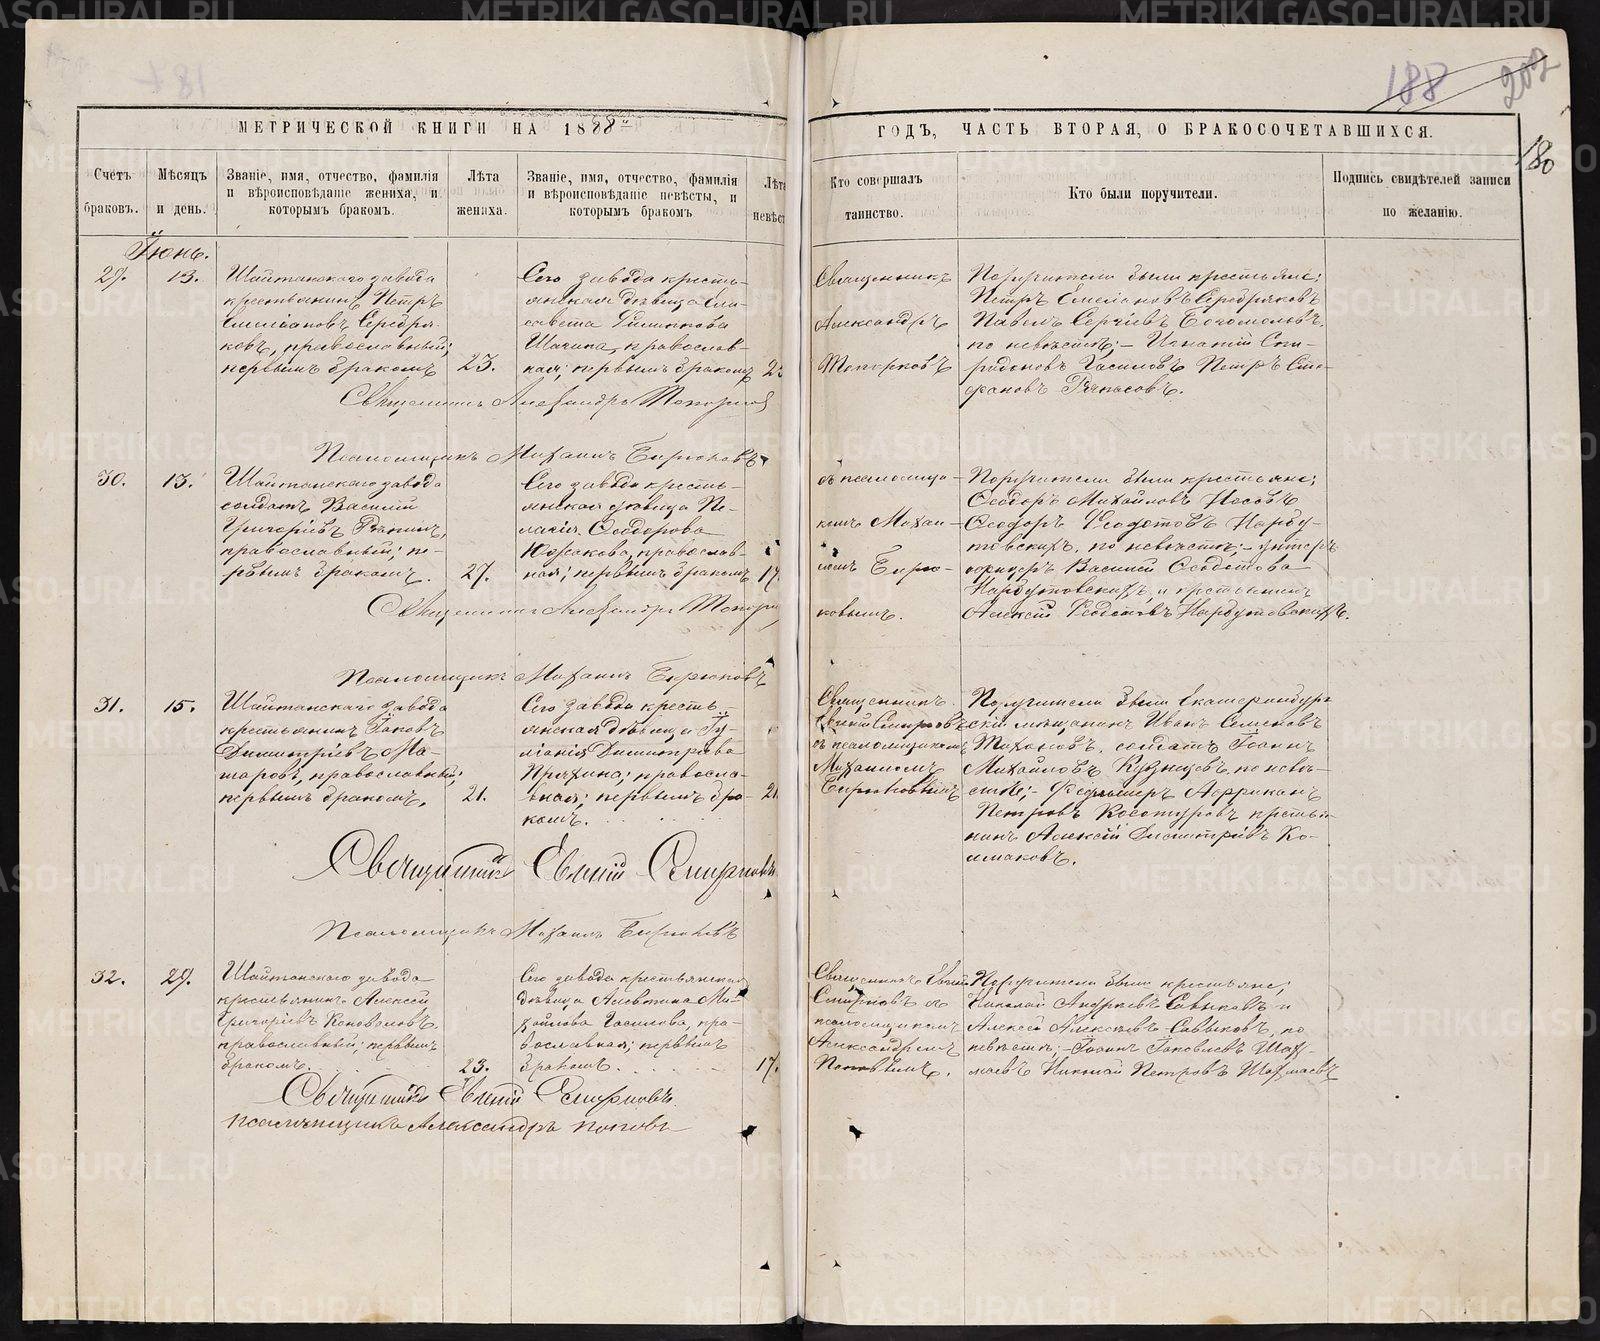 188
202
180
МЕТРИЧЕСКОЙ КНИГИ НА 1888й
ГОДЪ, ЧАСТЬ ВТОРАЯ, О БРАКОСОЧЕТАВШИХСЯ.
Счетъ браковъ.
Мѣсяцъ и день.
Званіе, имя, отчество, фамилія
и вѣроисповѣданіе жениха, и
которымъ бракомъ.
Лѣта
жениха.
Званіе, имя, отчество, фамилія
и вѣроисповѣданіе невѣсты, и
которымъ бракомъ
Кто совершалъ
таинство.
Кто были поручители.
Подпись свидѣтелей записи
по желанію.
Іюнь.
29.
13.
Шайтанскаго завода
крестьянинъ Петръ
Емельяновъ Серебря-
ковъ, православный;
первымъ бракомъ
23.
Сего завода кресть-
янская дѣвица Ели-
савета Филиппова
православ-
ная; первымъ бракомъ
Священникъ
Александръ
Топорковъ
Поручители были крестьяне;
Петръ Емельяновъ Серебряковъ
Павелъ Сергіевъ Богомоловъ,
по невѣстѣ; – Игнатій Спи-
ридоновъ Гасиловъ Петръ Сте-
фановъ
Священникъ Александръ Топорков
Псаломщикъ Михаилъ Бирюковъ
30.
13.
Шайтанскаго завода
солдатъ Василій
Григоріевъ
православный; пе-
рвымъ бракомъ.
27.
Сего завода кресть-
янская дѣвица Пе-
лагія Ѳеодорова
православ-
ная; первымъ бракомъ
17.
съ псаломщи-
комъ Михаи-
ломъ Бирю-
ковымъ.
Поручители были крестьяне;
Ѳеодоръ Михайловъ Носовъ
Ѳеодоръ Ѳедотовъ Нарбу-
товскихъ, по невѣстѣ; – унтеръ
офицеръ Василій
Нарбутовскихъ и крестьянинъ
Алексій Нарбутовскихъ.
Священникъ Александръ
Псаломщикъ Михаилъ Бирюковъ
31.
15.
Шайтанскаго завода
крестьянинъ Іаковъ
Димитріевъ Ма-
таровъ, православный;
первымъ бракомъ,
21.
Сего завода кресть-
янская дѣвица Іу-
ліанія Димитріева
Пряхина; правосла-
вная; первымъ бра-
комъ.
Священникъ
Евгеній Смирновъ
съ псаломщикомъ
Михаиломъ
Бирюковымъ
Поручители были Екатеринбург-
скій мѣщанинъ Иванъ Семеновъ
Тихоновъ, солдатъ Іоаннъ
Михайловъ Кузнецовъ, по невѣ-
стѣ; – Фельдшеръ Африканъ
Петровъ Косотуровъ крестья-
нинъ Алексій Димитріевъ Ко-
лмаковъ.
Священникъ Евгеній Смирновъ
Псаломщикъ Михаилъ Бирюковъ
32.
29.
Шайтанскаго завода
крестьянинъ Алексей
Григоріевъ Коноваловъ,
православный; первымъ
бракомъ.
23.
Сего завода крестьянская
дѣвица Алевтина Ми-
хайлова Гасилова, пра-
вославная; первымъ
бракомъ.
17.
Священникъ Евгеній
Смирновъ съ
псаломщикомъ
Александромъ
Поповымъ.
Поручители были крестьяне;
Николай Андреевъ Савыковъ и
Алексей Алексѣевъ Савыковъ, по
невѣстѣ; – Іоаннъ Іаковлевъ
Николай Петровъ
Священникъ Евгеній Смирновъ
псаломщикъ Александръ Поповъ